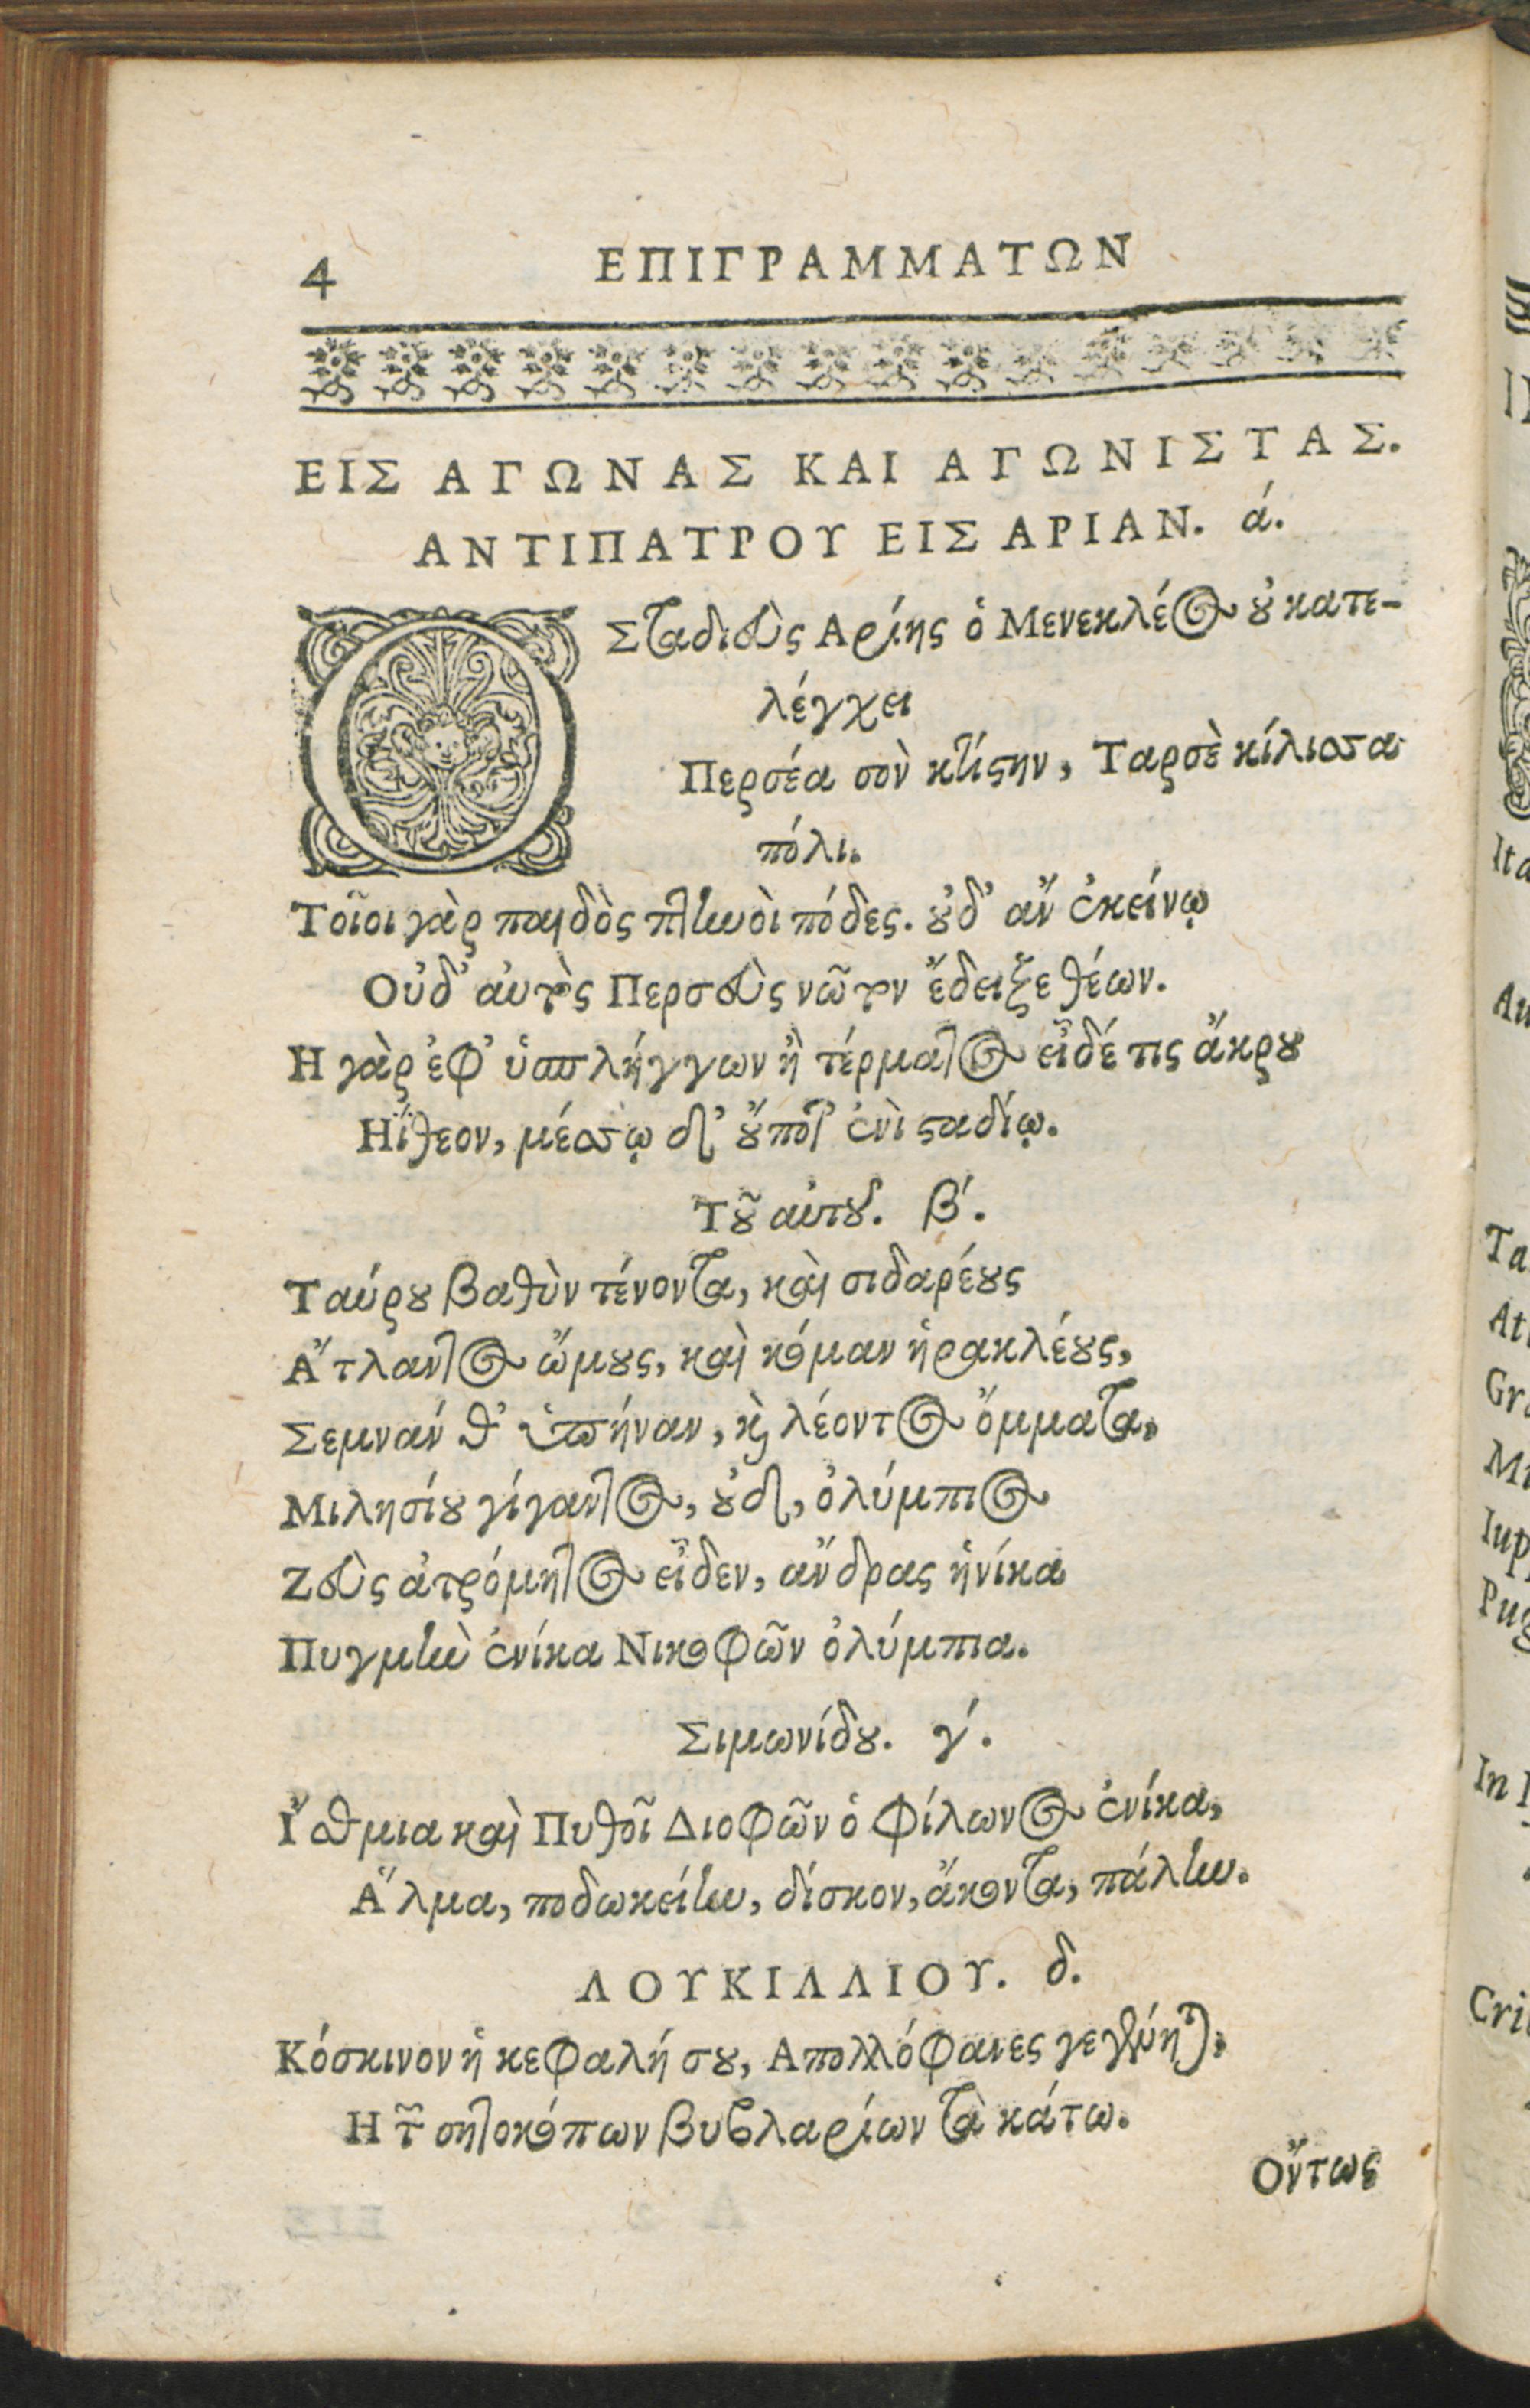 4 ΕΠΙΓΡΑΜΜΑΤΩΝ
ΕΙΣ ΑΓΩΝΑΣ ΚΑΙ ΑΓΩΝΙΣΤΑΣ.
ΑΝΤΙΠΑΤΡΟΥ ΕΙΣ ΑΡΙΑΝ. ά.
Ο Σταδιεὺς Αρίης ὁ Μενεκλέος οὐ κατε-
λέγχει
Περσέα σὸν κτίστην, Ταρσὲ κίλισσα
πόλι.
Τοῖοι γὰρ παιδὸς πτηνοὶ πόδες. οὐδ' ἂν ἐκείνῳ
Οὐδ' αὐτὸς Περσεὺς νῶτον ἔδειξε θέων.
Η γὰρ ἐφ' ὑσπλήγγων ἢ τέρματος εἶδέ τις ἄκρου
Ηΐθεον, μέσσῳ δ' οὔποτ' ἐνὶ σταδίῳ.
Τοῦ αὐτοῦ. β'.
Ταύρου βαθὺν τένοντα, καὶ σιδαρέους
Ἄτλαντος ὤμους, καὶ κόμαν ἡρακλέους,
Σεμνάν θ' ὑπήναν, καὶ λέοντος ὄμματα,
Μιλησίου γίγαντος, οὐδ', ὀλύμπιος
Ζεὺς ἀτρόμητος εἶδεν, ἄνδρας ἡνίκα
Πυγμὴν ἐνίκα Νικοφῶν ὀλύμπια.
Σιμωνίδου. γ'.
Ἴσθμια καὶ Πυθοῖ Διοφῶν ὁ Φίλωνος ἐνίκα,
Ἅλμα, ποδωκείην, δίσκον, ἄκοντα, πάλην.
ΛΟΥΚΙΛΛΙΟΥ. δ.
Κόσκινον ἡ κεφαλή σου, Απολλόφανες γεγένηται,
Η τῶν σητοκόπων βυβλαρίων τὰ κάτω.
Ὄντως